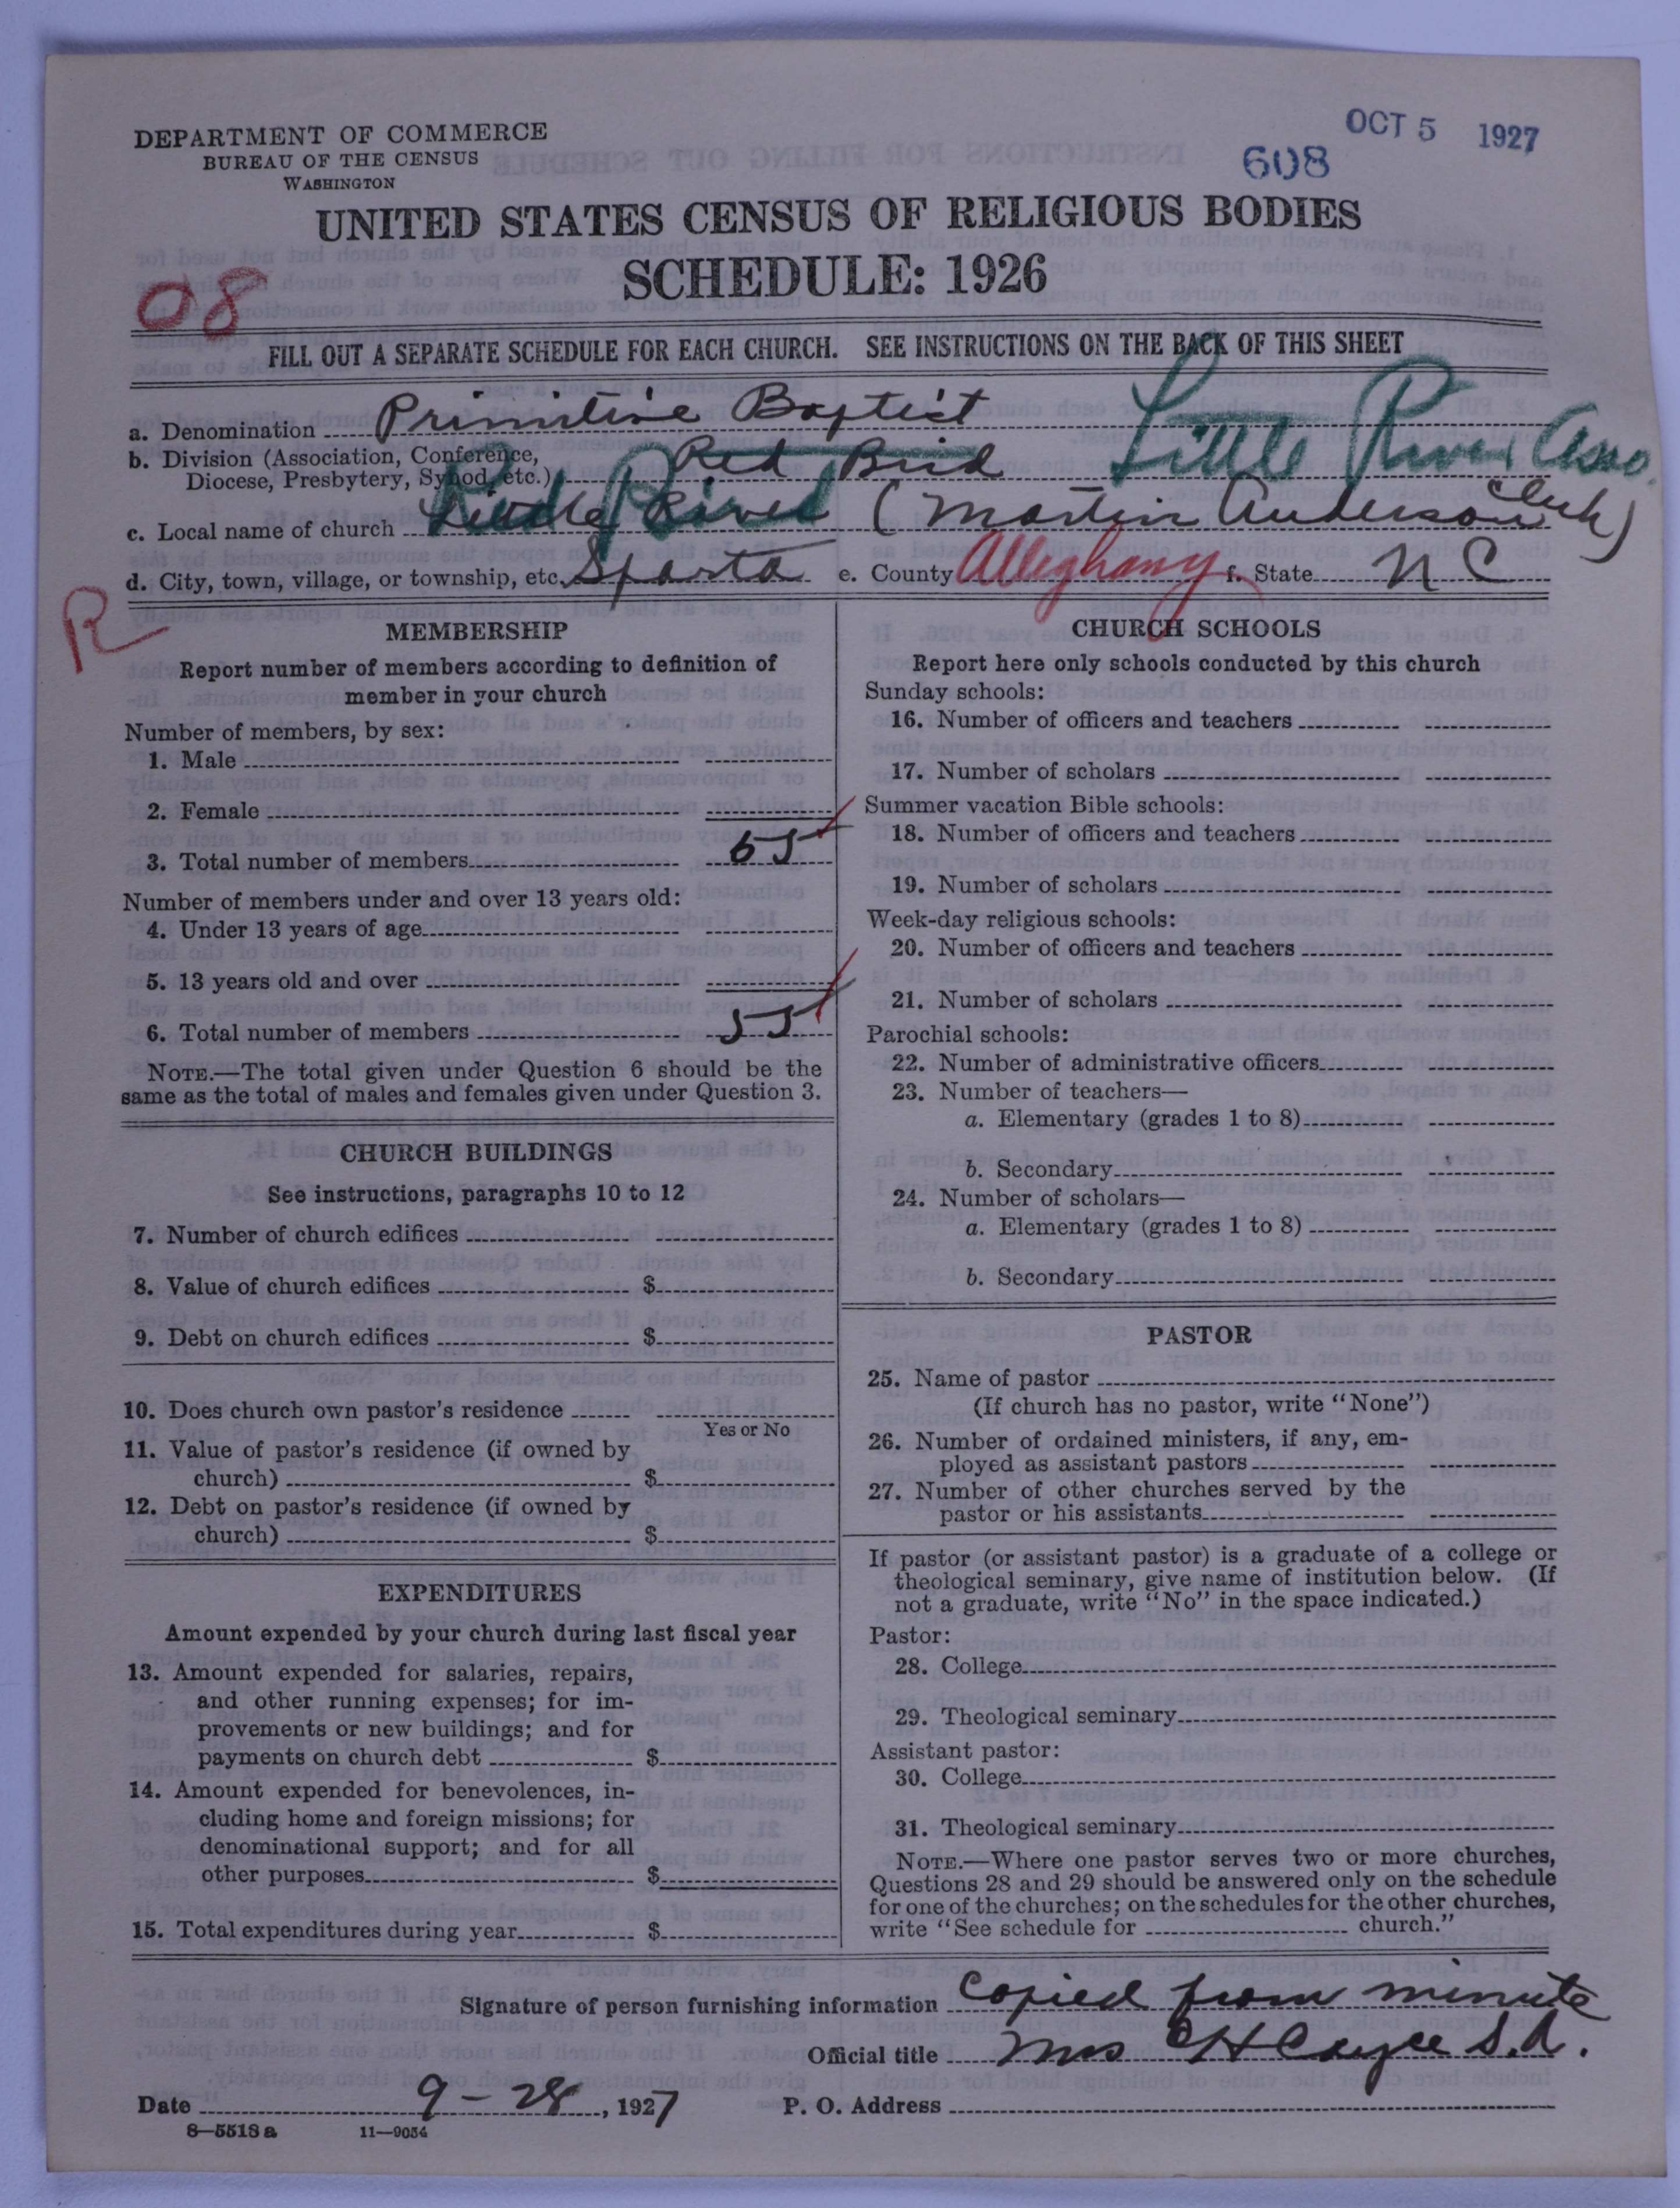 DEPARTMENT OF COMMERCE
BUREAU OF THE CENSUS
WASHINGTON
OCT 5 1927
608
UNITED STATES CENSUS OF RELIGIOUS BODIES
SCHEDULE: 1926
08
FILL OUT A SEPARATE SCHEDULE FOR EACH CHURCH. SEE INSTRUCTIONS ON THE BACK OF THIS SHEET
a. Denomination Primitive Baptist
b. Division (Association, Conference, Diocese, Presbytery, Synod, etc.) Red Bird Little River Asso.
c. Local name of church Little River (Martin Anderson Clerk) Red Bird
d. City, town, village, or township, etc. Sparta e. County Alleghany f. State N C
R
MEMBERSHIP
Report number of members according to definition of
member in your church
Number of members, by sex:
1. Male
2. Female
3. Total number of members 55
Number of members under and over 13 years old:
4. Under 13 years of age
5. 13 years old and over
6. Total number of members 55
NOTE.—The total given under Question 6 should be the
same as the total of males and females given under Question 3.
CHURCH BUILDINGS
See instructions, paragraphs 10 to 12
7. Number of church edifices
8. Value of church edifices $
9. Debt on church edifices $
10. Does church own pastor's residence
Yes or No
11. Value of pastor's residence (if owned by
church) $
12. Debt on pastor's residence (if owned by
church) $
EXPENDITURES
Amount expended by your church during last fiscal year
13. Amount expended for salaries, repairs,
and other running expenses; for im-
provements or new buildings; and for
payments on church debt $
14. Amount expended for benevolences, in-
cluding home and foreign missions; for
denominational support; and for all
other purposes $
15. Total expenditures during year $
CHURCH SCHOOLS
Report here only schools conducted by this church
Sunday schools:
16. Number of officers and teachers
17. Number of scholars
Summer vacation Bible schools:
18. Number of officers and teachers
19. Number of scholars
Week-day religious schools:
20. Number of officers and teachers
21. Number of scholars
Parochial schools:
22. Number of administrative officers
23. Number of teachers—
a. Elementary (grades 1 to 8)
b. Secondary
24. Number of scholars—
a. Elementary (grades 1 to 8)
b. Secondary
PASTOR
25. Name of pastor
(If church has no pastor, write "None")
26. Number of ordained ministers, if any, em-
ployed as assistant pastors
27. Number of other churches served by the
pastor or his assistants
If pastor (or assistant pastor) is a graduate of a college or
theological seminary, give name of institution below. (If
not a graduate, write "No" in the space indicated.)
Pastor:
28. College
29. Theological seminary
Assistant pastor:
30. College
31. Theological seminary
NOTE.—Where one pastor serves two or more churches,
Questions 28 and 29 should be answered only on the schedule
for one of the churches; on the schedules for the other churches,
write "See schedule for church."
Signature of person furnishing information copied from minute
Official title Mrs C H Cayce S.A.
Date 9-28, 1927 P. O. Address
8—5518a 11—9054